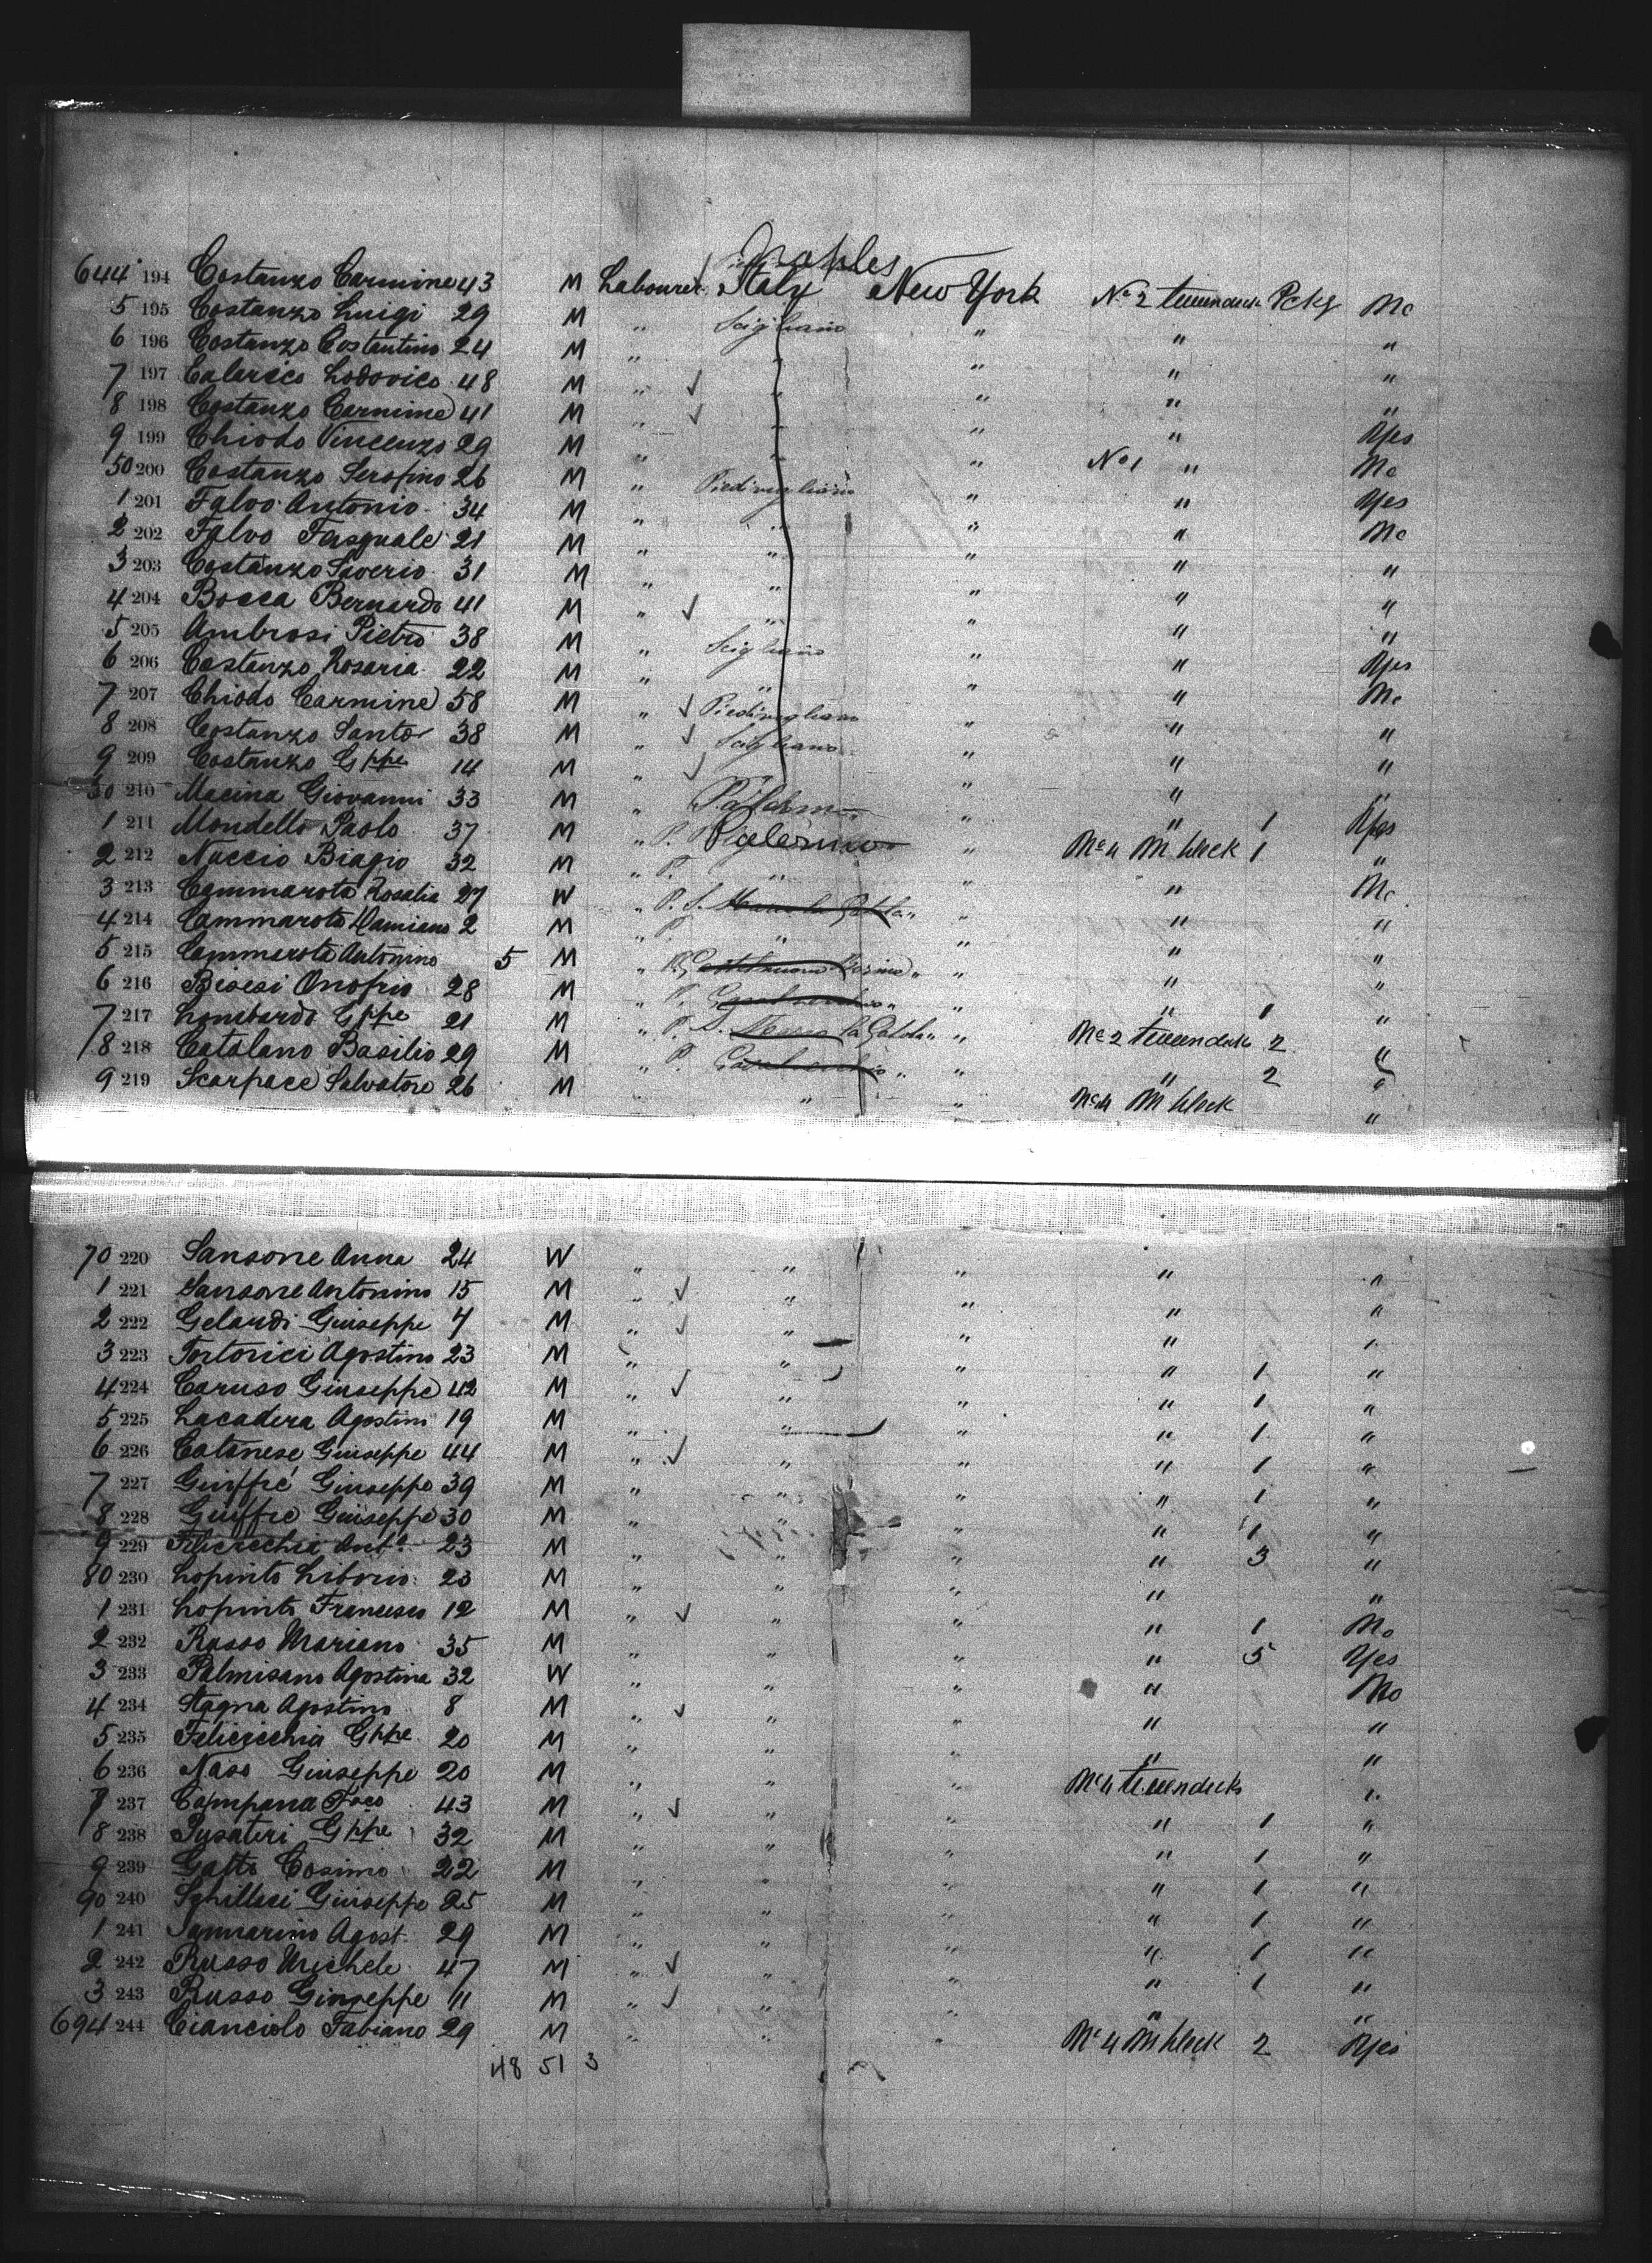 Naples
644 194 Costanzo Carmine 43 M Labourer Italy New York No 2 tweendeck Pckg No
5 195 Costanzo Luigi 29 M " Scigliano " " "
6 196 Costanzo Costantino 24 M " " " " "
7 197 Calarico Lodovico 48 M " " " " "
8 198 Costanzo Carmine 41 M " " " " Yes
9 199 Chiodo Vincenzo 29 M " " " No 1 " No
50 200 Costanzo Serafino 26 M " Piedivigliano " " Yes
1 201 Falvo Antonio 34 M " " " " No
2 202 Falvo Pasquale 21 M " " " " "
3 203 Costanzo Saverio 31 M " " " " "
4 204 Bocca Bernardo 41 M " " " "
5 205 Ambrosi Pietro 38 M " Scigliano " " Yes
6 206 Costanzo Rosaria 22 M " " " " No
7 207 Chiodo Carmine 58 M " Piedivigliano " " "
8 208 Costanzo Santo 38 M " Scigliano " " "
9 209 Costanzo Gppe 14 M " " " "
210 Macina Giovanni 33 M " " " 1 Yes
1 211 Mondello Paolo 37 M " P. Palermo " No 4 1 "
2 212 Naccio Biagio 32 M " P. " " " No
3 213 Cammarota Rosalia 27 W " P. S. " " "
4 214 Cammarota Damiano 2 M " P. " " " "
5 215 Cammarota Antonino 5 M " P. " " "
6 216 Bisesi Onofrio 28 M " P. " " 1 "
7 217 Lombardo Gppe 21 M " P. S. " No 2 tweendeck 2 "
8 218 Catalano Basilio 29 M " P. " " 2 "
9 219 Scarpace Salvatore 26 M " " " No 4 "
70 220 Sansone Anna 24 W " " " " "
1 221 Sansone Antonino 15 M " " " " "
2 222 Gelardi Giuseppe 7 M " " " " "
3 223 Tortorici Agostino 23 M " " " " 1 "
4 224 Caruso Giuseppe 42 M " " " " 1 "
5 225 Lacadera Agostini 19 M " " " " 1 "
6 226 Catanese Giuseppe 44 M " " " " 1 "
7 227 Giuffré Giuseppe 39 M " " " " 1 "
8 228 Giuffre Giuseppe 30 M " " " " 1 "
9 229 Felicicchia Anto 23 M " " " " 3 "
80 230 Lopinto Liborio 23 M " " " " "
1 231 Lopinto Francesco 12 M " " " " 1 No
2 232 Russo Mariano 35 M " " " " 5 Yes
3 233 Palmisano Agostina 32 W " " " " No
4 234 Stagna Agostino 8 M " " " " "
5 235 Felicicchia Gppe 20 M " " " " "
6 236 Naso Giuseppe 20 M " " " No 4 tweendeck "
7 237 Campana Fraco 43 M " " " " 1 "
8 238 Pusateri Gppe 32 M " " " " 1 "
9 239 Gatto Cosimo 22 M " " " " 1 "
90 240 Schillaci Giuseppe 25 M " " " " 1 "
1 241 Sanmarino Agost. 29 M " " " " 1 "
2 242 Russo Michele 47 M " " " " 1 "
3 243 Russo Giuseppe 11 M " " " " "
694 244 Cianciolo Fabiano 29 M " " " No 4 2 Yes
48 51 3